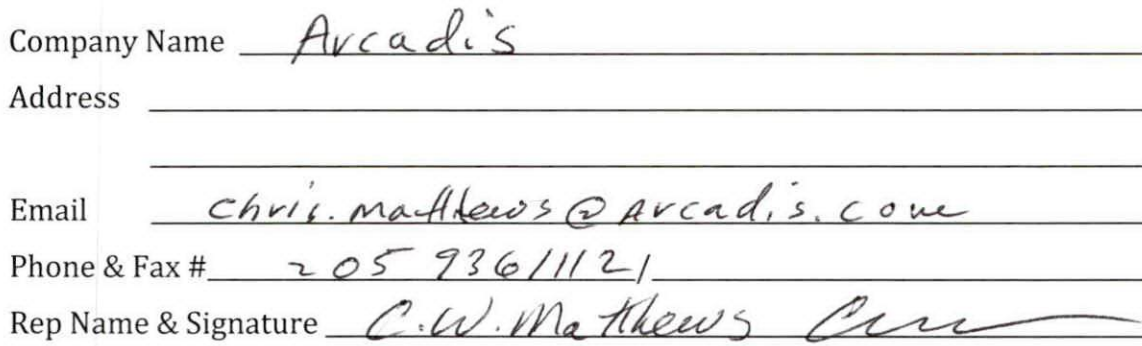 Company Name Arcadis
Address
Email chris.matthews@arcadis.com
Phone & Fax # 205 936 1121
Rep Name & Signature C.W. Matthews